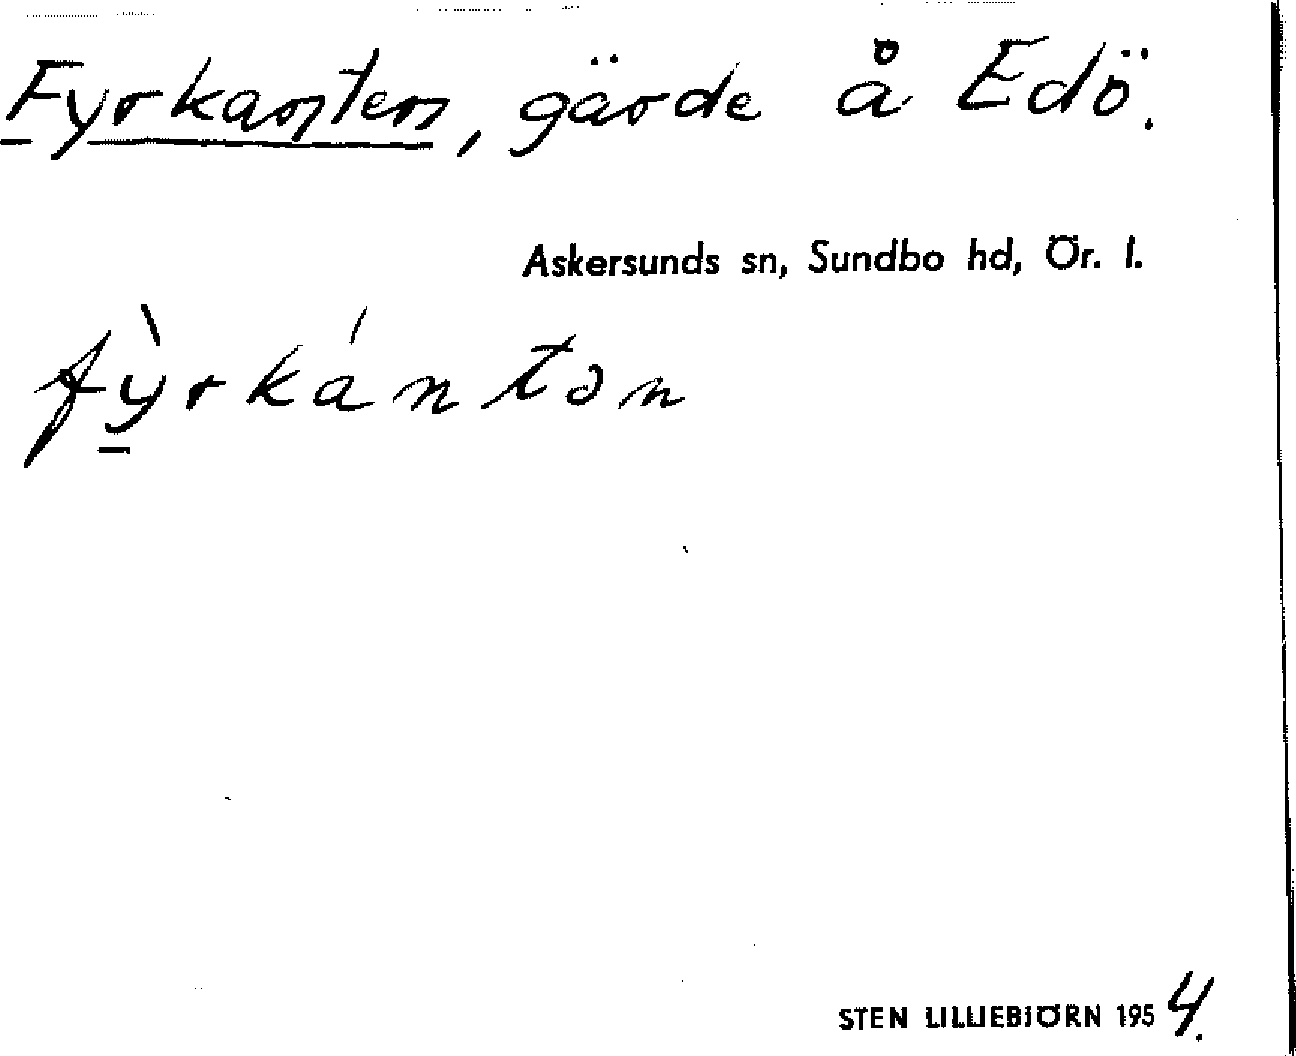 Fyrkanten, gärde å Edö.
Askersunds sn, Sundbo hd, Ör. l.
fỳ̱rkántən
STEN LILLIEBJÖRN 1954.